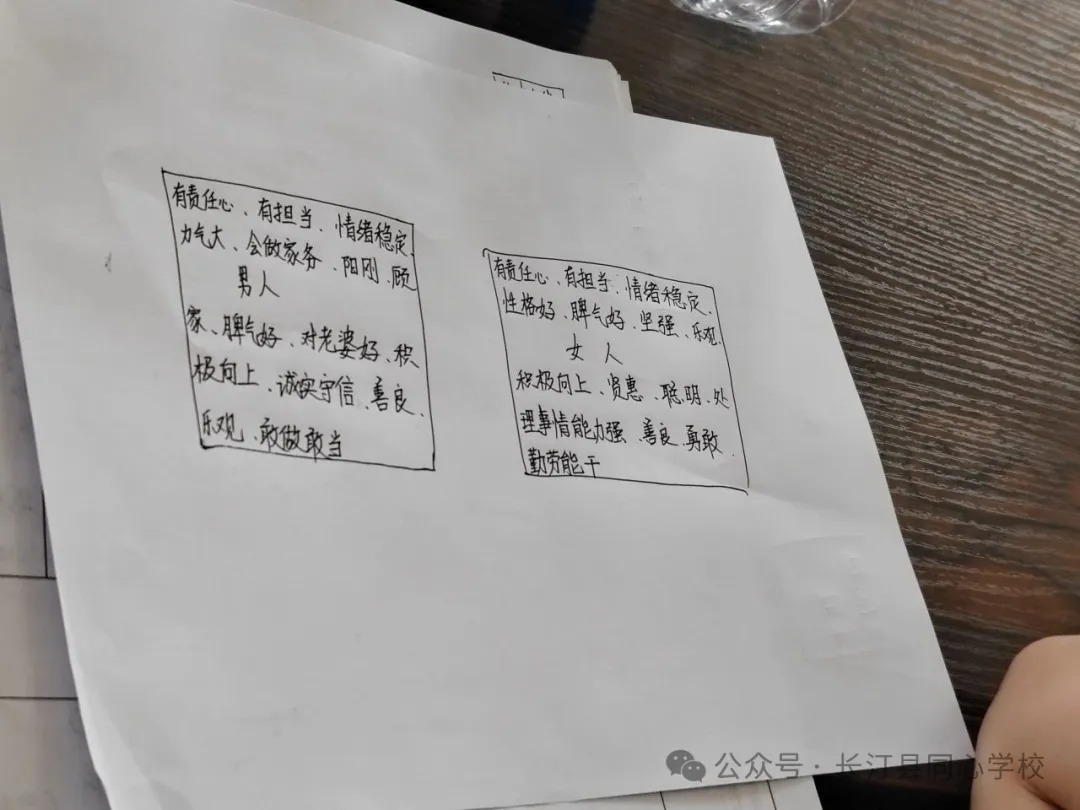 有责任心、有担当、情绪稳定、
力气大、会做家务、阳刚、顾
男人
家、脾气好、对老婆好、积
极向上、诚实守信、善良、
乐观、敢做敢当
有责任心、有担当、情绪稳定、
性格好、脾气好、坚强、乐观、
女人
积极向上、贤惠、聪明、处
理事情能力强、善良、勇敢、
勤劳能干
公众号·长汀县同心学校